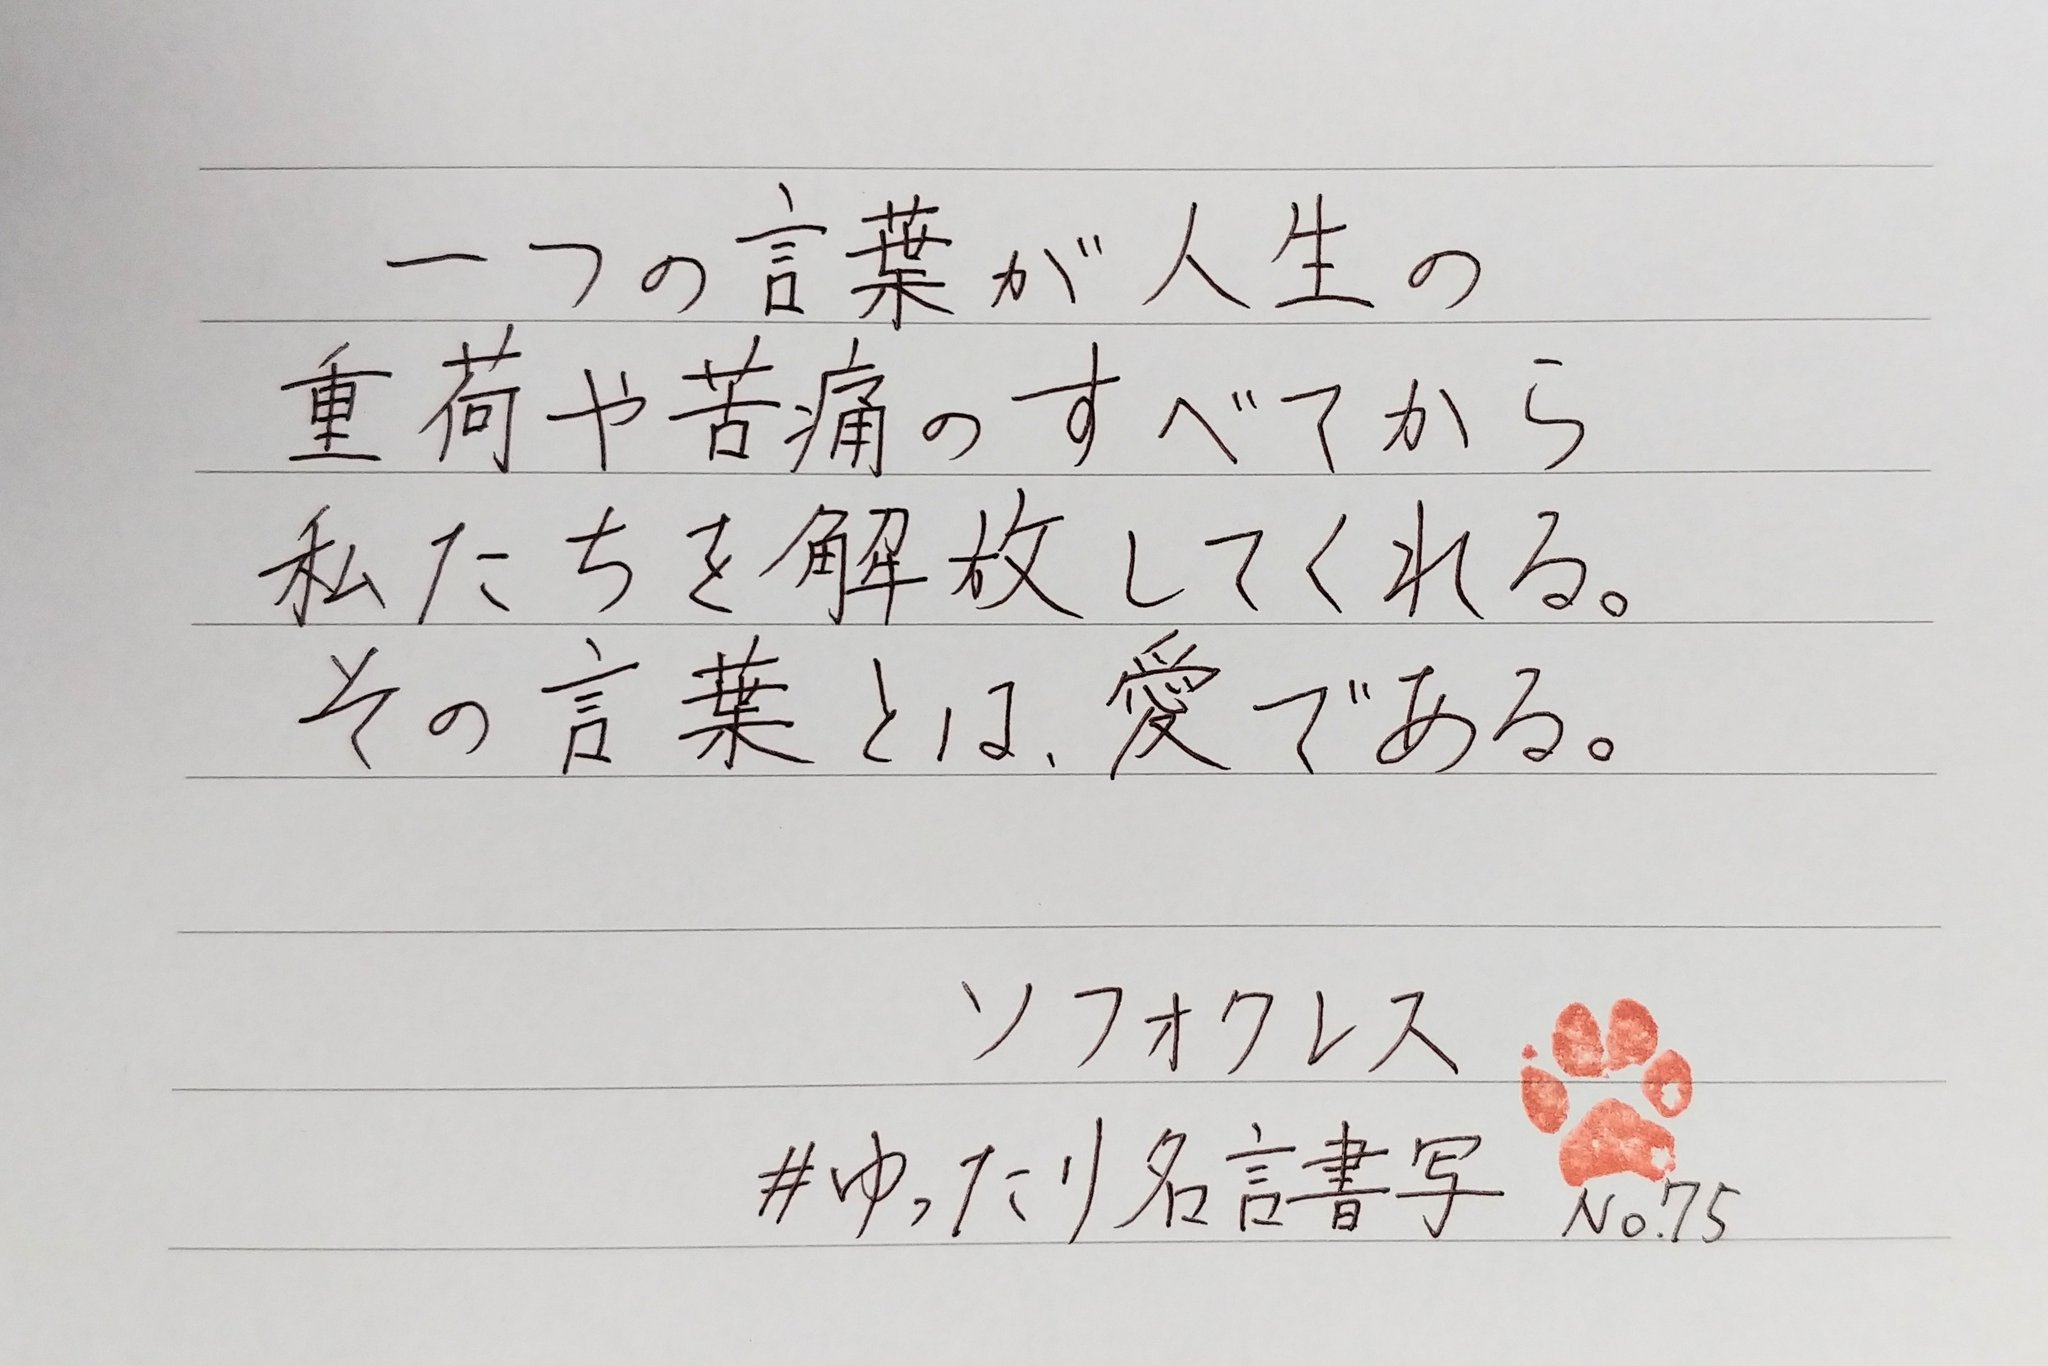 一つの言葉が人生の
重荷や苦痛のすべてから
私たちを解放してくれる。
その言葉とは、愛である。
ソフォクレス
#ゆったり名言書写
No.75